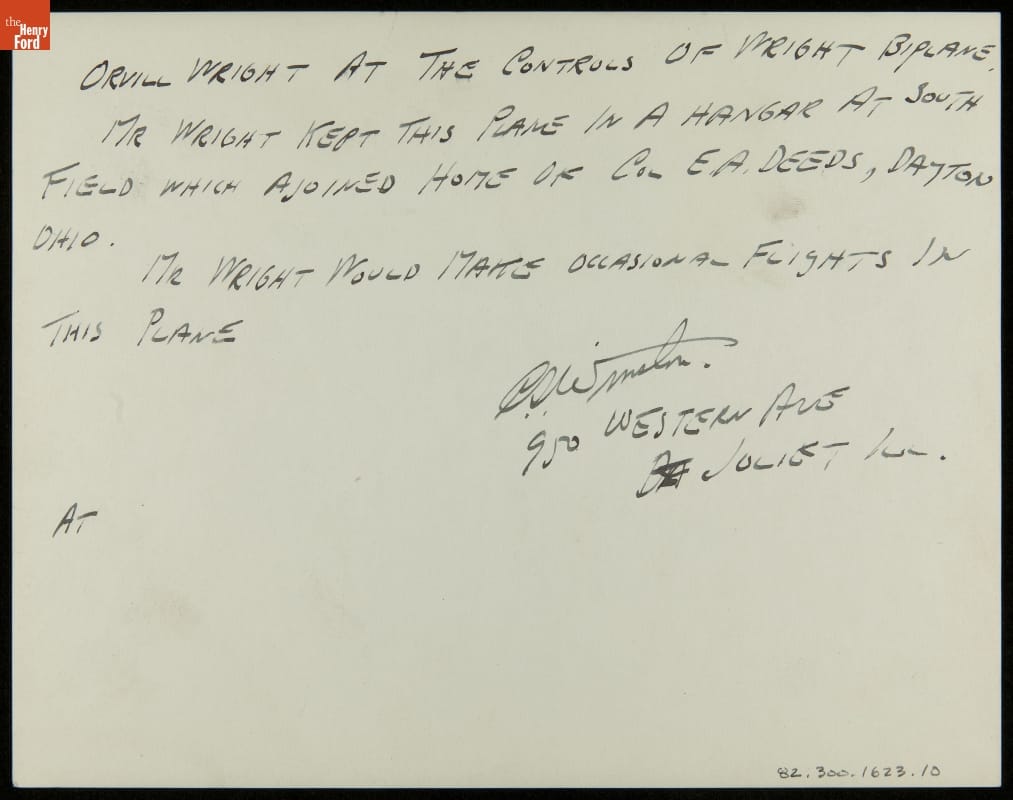 the
Henry
Ford
ORVILL WRIGHT AT THE CONTROLS OF WRIGHT BIPLANE.
MR WRIGHT KEPT THIS PLANE IN A HANGAR AT SOUTH
FIELD WHICH AJOINED HOME OF COL E.A. DEEDS, DAYTON
OHIO.
MR WRIGHT WOULD MAKE OCCASIONAL FLIGHTS IN
THIS PLANE
950 WESTERN AVE
JOLIET ILL.
AT
82.300.1623.10